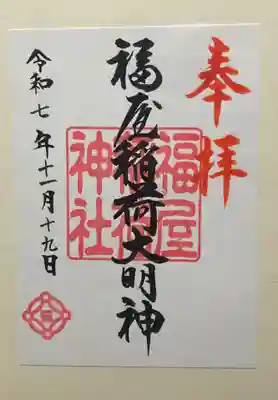 奉拝
福屋稲荷大明神
福屋稲荷神社
令和七年十一月十九日